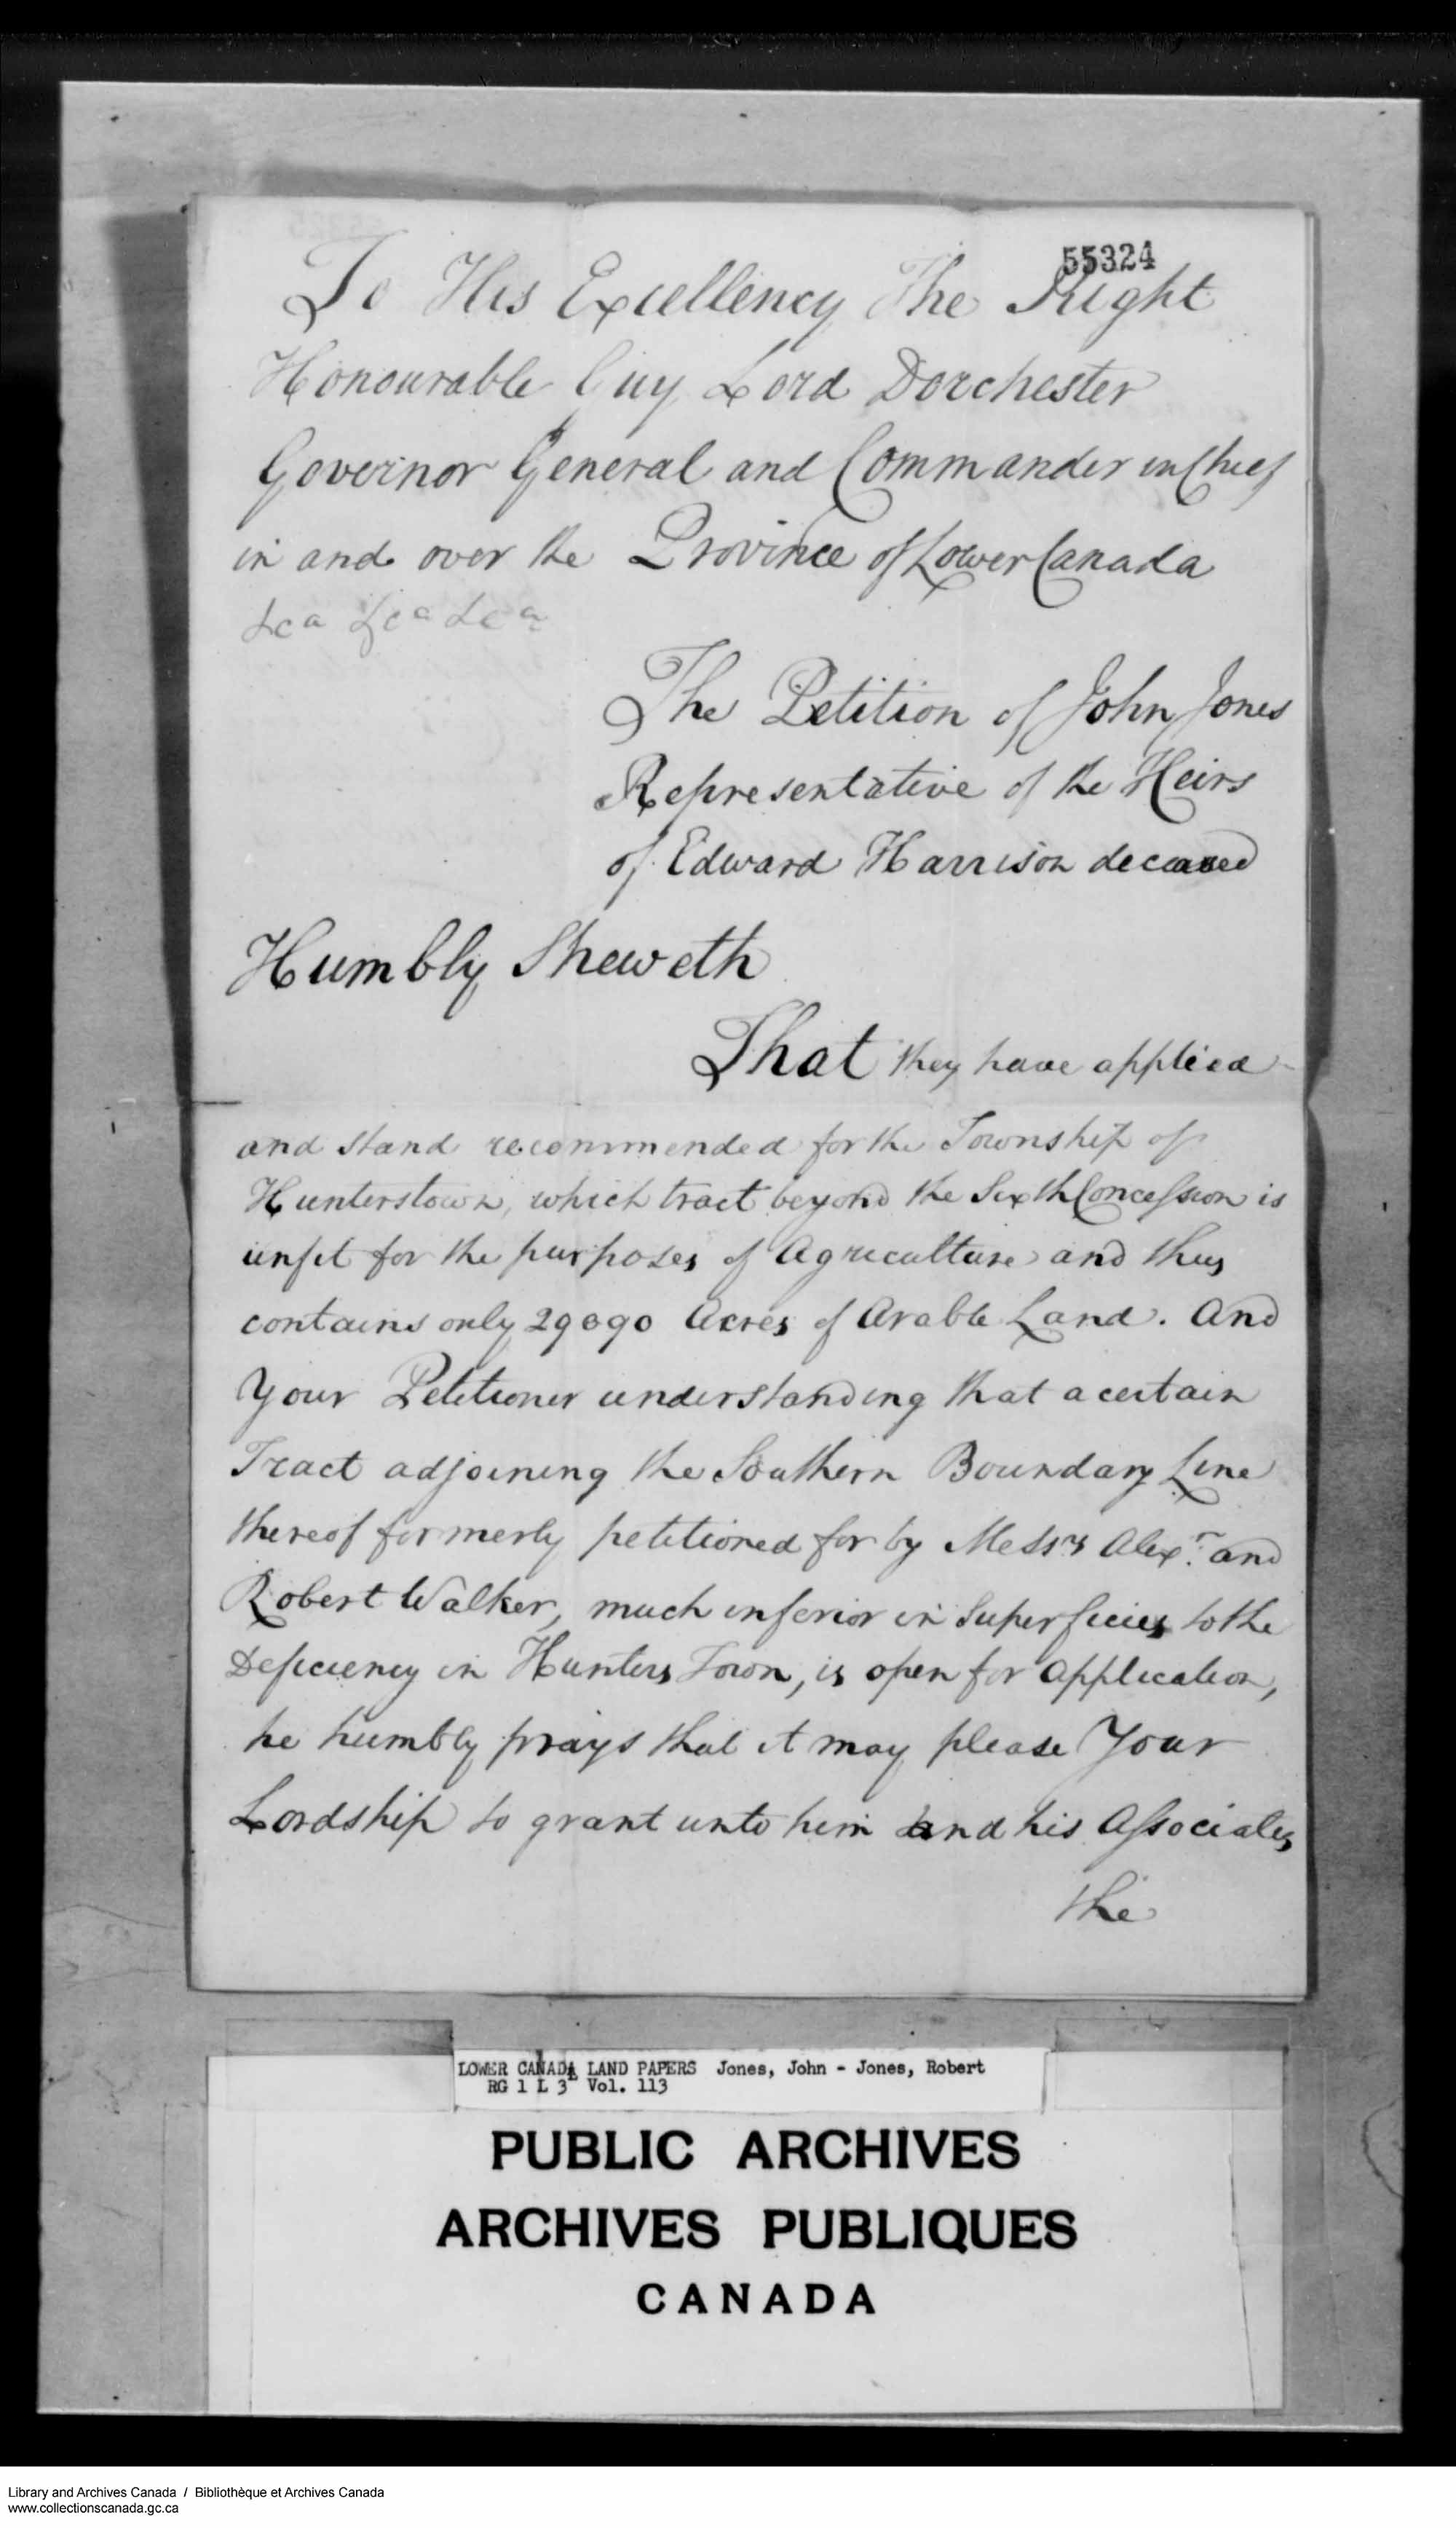 55324
To His Excellency The Right
Honourable Guy Lord Dorchester
Governor General and Commander in Chief
in and over the Province of Lower Canada
&ca &ca &ca
The Petition of John Jones
Representative of the Heirs
of Edward Harrison deceased
Humbly Sheweth
That they have applied
and stand recommended for the Township of
Hunterstown, which tract beyond the Sixth Concession is
unfit for the purposes of Agriculture and thus
contains only 29090 Acres of Arable Land. And
Your Petitioner understanding that a certain
Tract adjoining the Southern Boundary Line
thereof formerly petitioned for by Messrs Alexr. and
Robert Walker, much inferior in Superficies to the
Deficiency in Hunters Town, is open for Application,
he humbly prays that it may please Your
Lordship to grant unto him and his Associates
the
LOWER CANADA LAND PAPERS Jones, John - Jones, Robert
RG 1 L 3 Vol. 113
PUBLIC ARCHIVES
ARCHIVES PUBLIQUES
CANADA
Library and Archives Canada / Bibliothèque et Archives Canada
www.collectionscanada.gc.ca